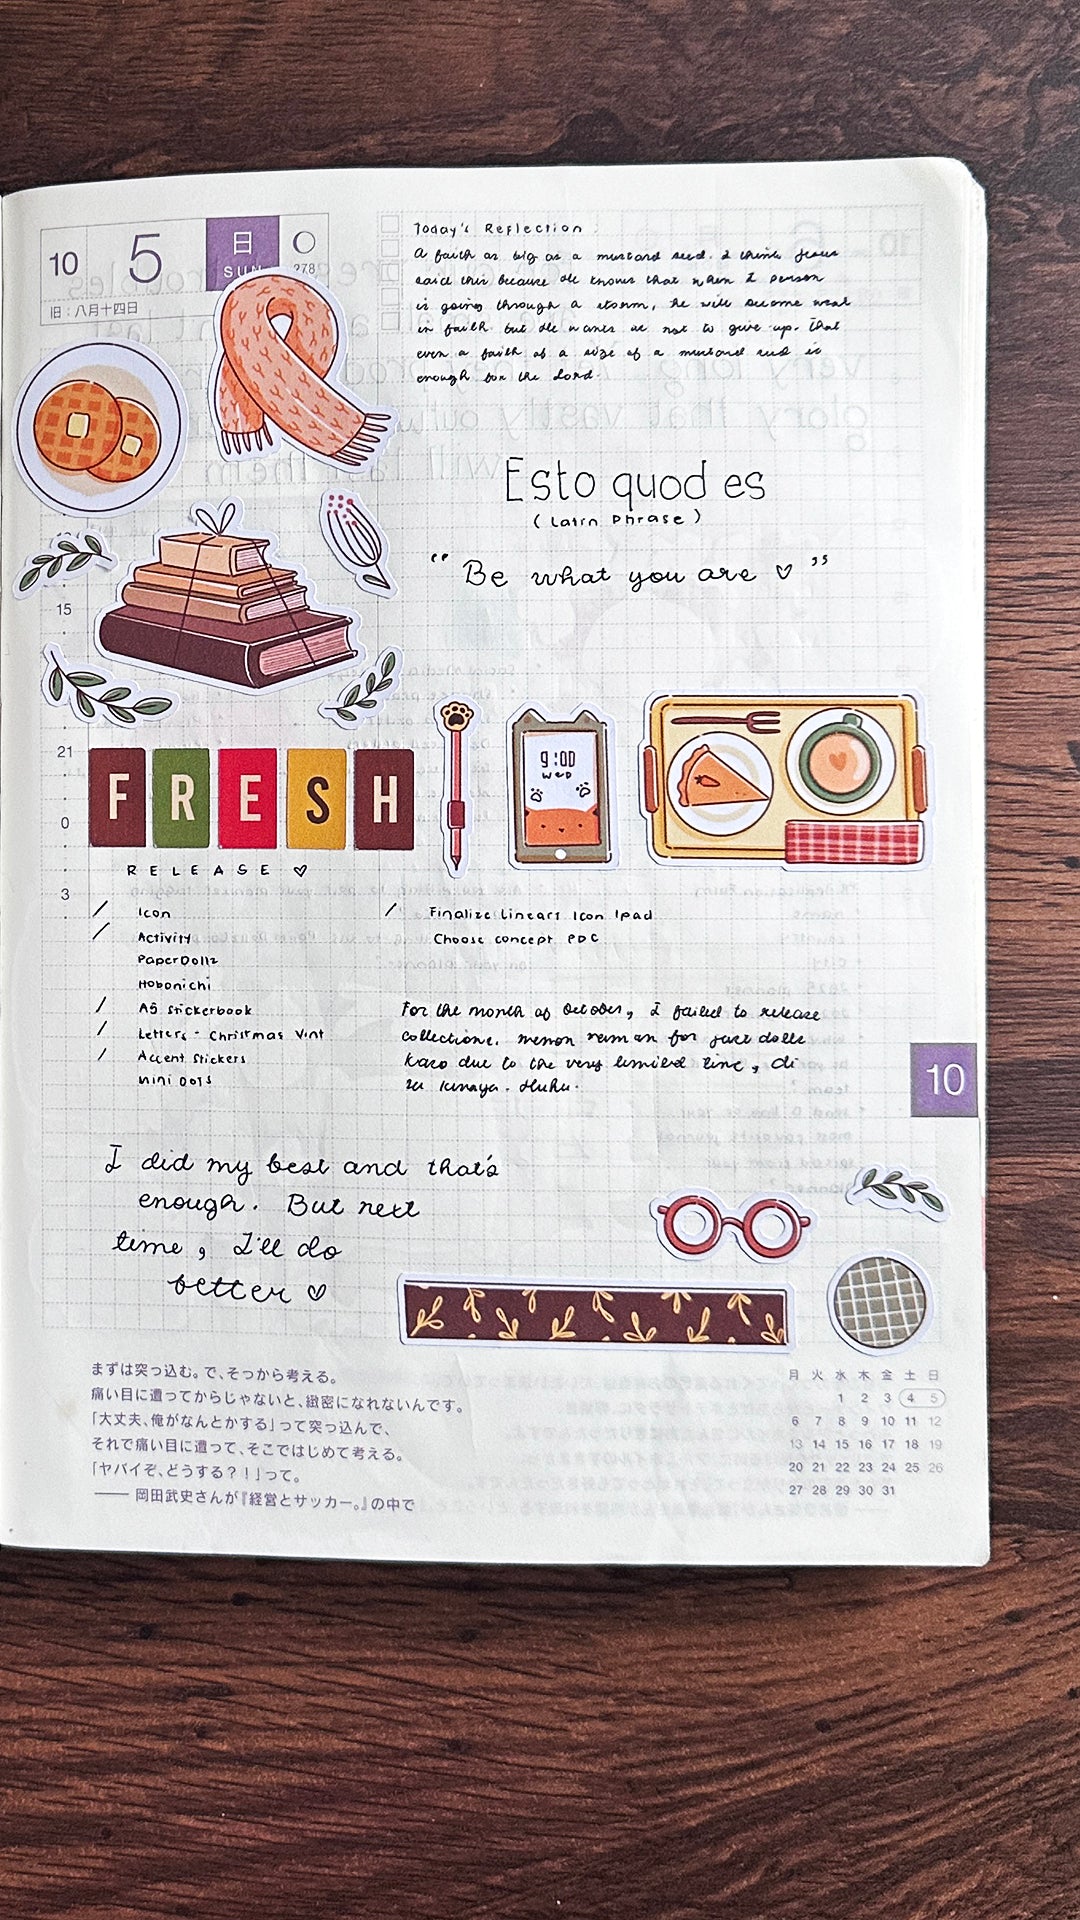 10 5 日 SUN 278
旧：八月十四日
Today's Reflection
A faith as big as a mustard seed. I think Jesus
said this because He knows that when a person
is going through a storm, he will become weak
in faith but He wants us not to give up. That
even a faith of a size of a mustard seed is
enough for the Lord.
Esto quod es
(Latin Phrase)
"Be what you are ♡"
15
21
0
3
9:00
WED
FRESH
RELEASE ♡
/ Icon
/ Activity
PaperDollz
Hobonichi
/ A5 Stickerbook
/ Letters - Christmas Vint
/ Accent Stickers
Mini Dots
/ Finalize Lineart Icon Ipad
Choose concept PDC
For the month of October, I failed to release
collections. meron naman for
kaso due to the very limited time, di
ku kinaya. Huhu.
10
I did my best and that's
enough. But next
time, I'll do
better ♡
まずは突っ込む。で、そっから考える。
痛い目に遭ってからじゃないと、緻密になれないんです。
「大丈夫、俺がなんとかする」って突っ込んで、
それで痛い目に遭って、そこではじめて考える。
「ヤバイぞ、どうする？！」って。
—— 岡田武史さんが『経営とサッカー。』の中で
月 火 水 木 金 土 日
1 2 3 4 5
6 7 8 9 10 11 12
13 14 15 16 17 18 19
20 21 22 23 24 25 26
27 28 29 30 31